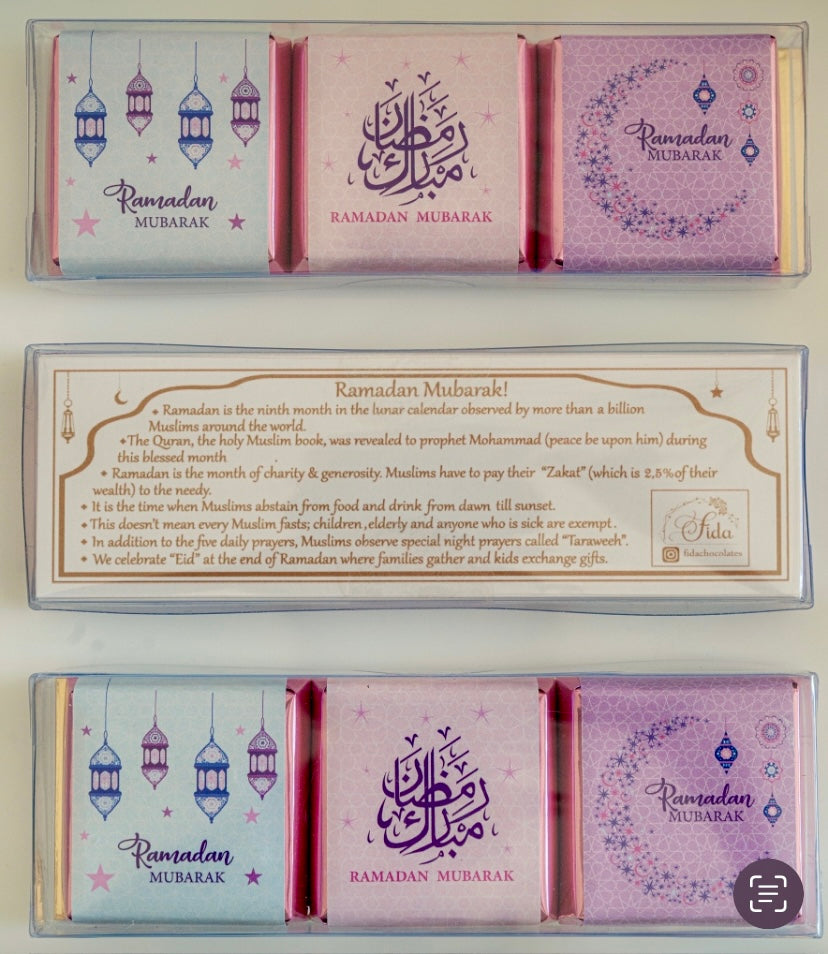 Ramadan
MUBARAK
رمضان
مبارك
RAMADAN MUBARAK
Ramadan
MUBARAK
Ramadan Mubarak!
Ramadan is the ninth month in the lunar calendar observed by more than a billion
Muslims around the world.
The Quran, the holy Muslim book, was revealed to prophet Mohammad (peace be upon him) during
this blessed month
Ramadan is the month of charity & generosity. Muslims have to pay their "Zakat" (which is 2,5% of their
wealth) to the needy.
It is the time when Muslims abstain from food and drink from dawn till sunset.
This doesn't mean every Muslim fasts; children, elderly and anyone who is sick are exempt.
In addition to the five daily prayers, Muslims observe special night prayers called "Taraweeh".
We celebrate "Eid" at the end of Ramadan where families gather and kids exchange gifts.
Fida
fidachocolates
Ramadan
MUBARAK
رمضان
مبارك
RAMADAN MUBARAK
Ramadan
MUBARAK